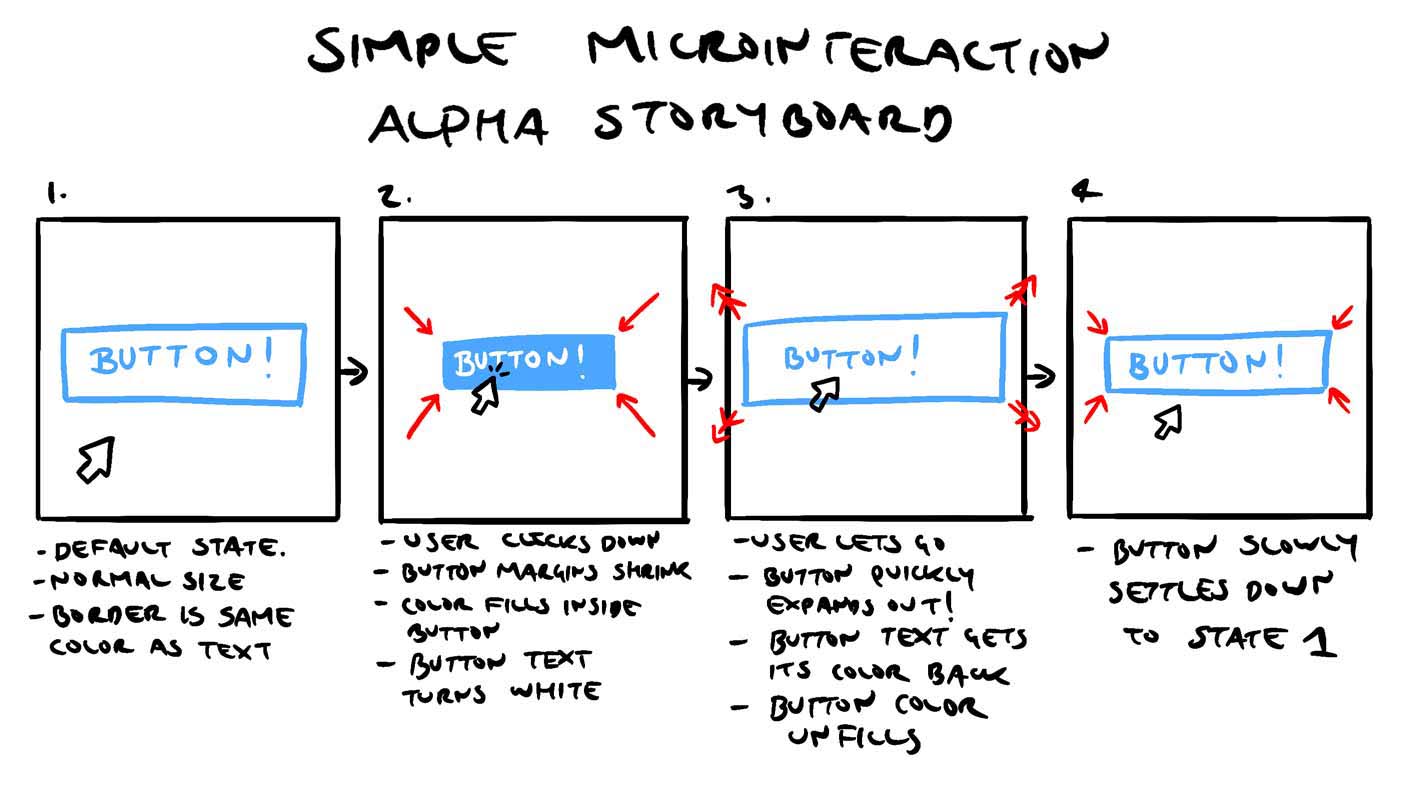 SIMPLE MICROINTERACTION
ALPHA STORYBOARD
1.
BUTTON!
- DEFAULT STATE.
- NORMAL SIZE
- BORDER IS SAME
COLOR AS TEXT
2.
BUTTON!
- USER CLICKS DOWN
- BUTTON MARGINS SHRINK
- COLOR FILLS INSIDE
BUTTON
- BUTTON TEXT
TURNS WHITE
3.
BUTTON!
- USER LETS GO
- BUTTON QUICKLY
EXPANDS OUT!
- BUTTON TEXT GETS
ITS COLOR BACK
- BUTTON COLOR
UNFILLS
4
BUTTON!
- BUTTON SLOWLY
SETTLES DOWN
TO STATE 1